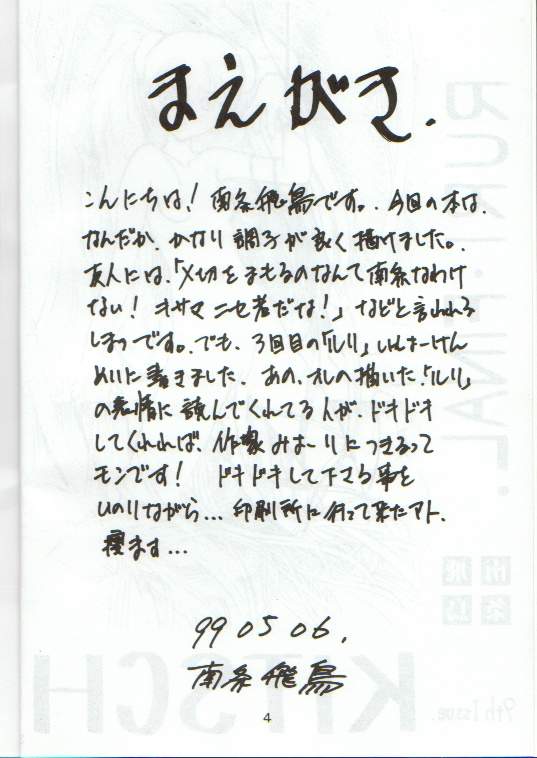 まえがき.
こんにちは! 南条飛鳥です。今回の本は、
なんだか、かなり調子が良く描けました。
友人には、「〆切をまもるのなんて南条なわけ
ない! キサマニセ者だな!」などと言われる
しまつです。でも、3回目の「ルリ」いっしょーけん
めいに書きました。あの、オレの描いた「ルリ」
の表情に読んでくれてる人が、ドキドキ
してくれれば、作家みょーりにつきるって
モンです! ドキドキして下さる事を
いのりながら... 印刷所に行って来たアト、
寝ます...
99 05 06.
南条飛鳥
4
RURI・FINAL.
南条
飛鳥
KITSCH
9th Issue.